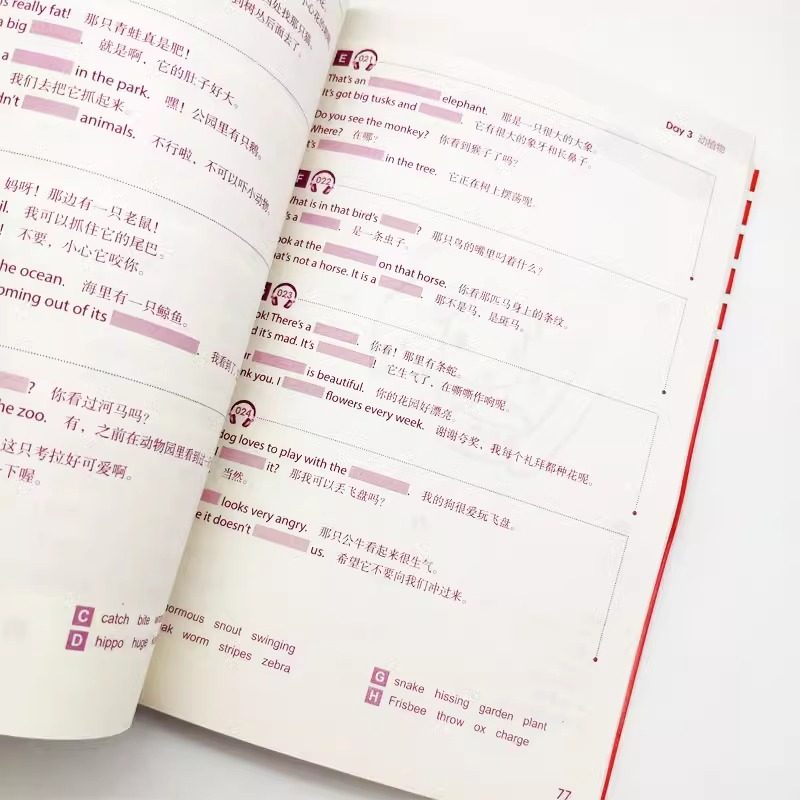 s really fat! 那只青蛙真是肥！
a big . 就是啊，它的肚子好大。
a in the park. 嘿！公园里有只鹅。
我们去把它抓起来。
dn't animals. 不行啦，不可以吓小动物。
到树丛后面去了。
妈呀！那边有一只老鼠！
il. 我可以抓住它的尾巴。
! 不要，小心它咬你。
he ocean. 海里有一只鲸鱼。
oming out of its . 我看到了
? 你看过河马吗？
he zoo. 有，之前在动物园里看到过一
这只考拉好可爱啊。
一下喔。
C catch bite
D hippo huge
Day 3 动植物
E 021
That's an elephant. 那是一只很大的大象。
It's got big tusks and . 它有很大的象牙和长鼻子。
Do you see the monkey? 你看到猴子了吗？
Where? 在哪？
t's in the tree. 它正在树上摆荡呢。
F 022
hat is in that bird's ? 那只鸟的嘴里叼着什么？
's a . 是一条虫子。
ok at the on that horse. 你看那匹马身上的条纹。
at's not a horse. It is a . 那不是马，是斑马。
023
ok! There's a . 你看！那里有条蛇。
d it's mad. It's ! 它生气了，在嘶嘶作响呢。
ur is beautiful. 你的花园好漂亮。
nk you. I flowers every week. 谢谢夸奖，我每个礼拜都种花呢。
024
dog loves to play with the . 我的狗很爱玩飞盘。
it? 那我可以丢飞盘吗？
当然。
looks very angry. 那只公牛看起来很生气。
e it doesn't us. 希望它不要向我们冲过来。
ormous snout swinging
ak worm stripes zebra
G snake hissing garden plant
H Frisbee throw ox charge
77